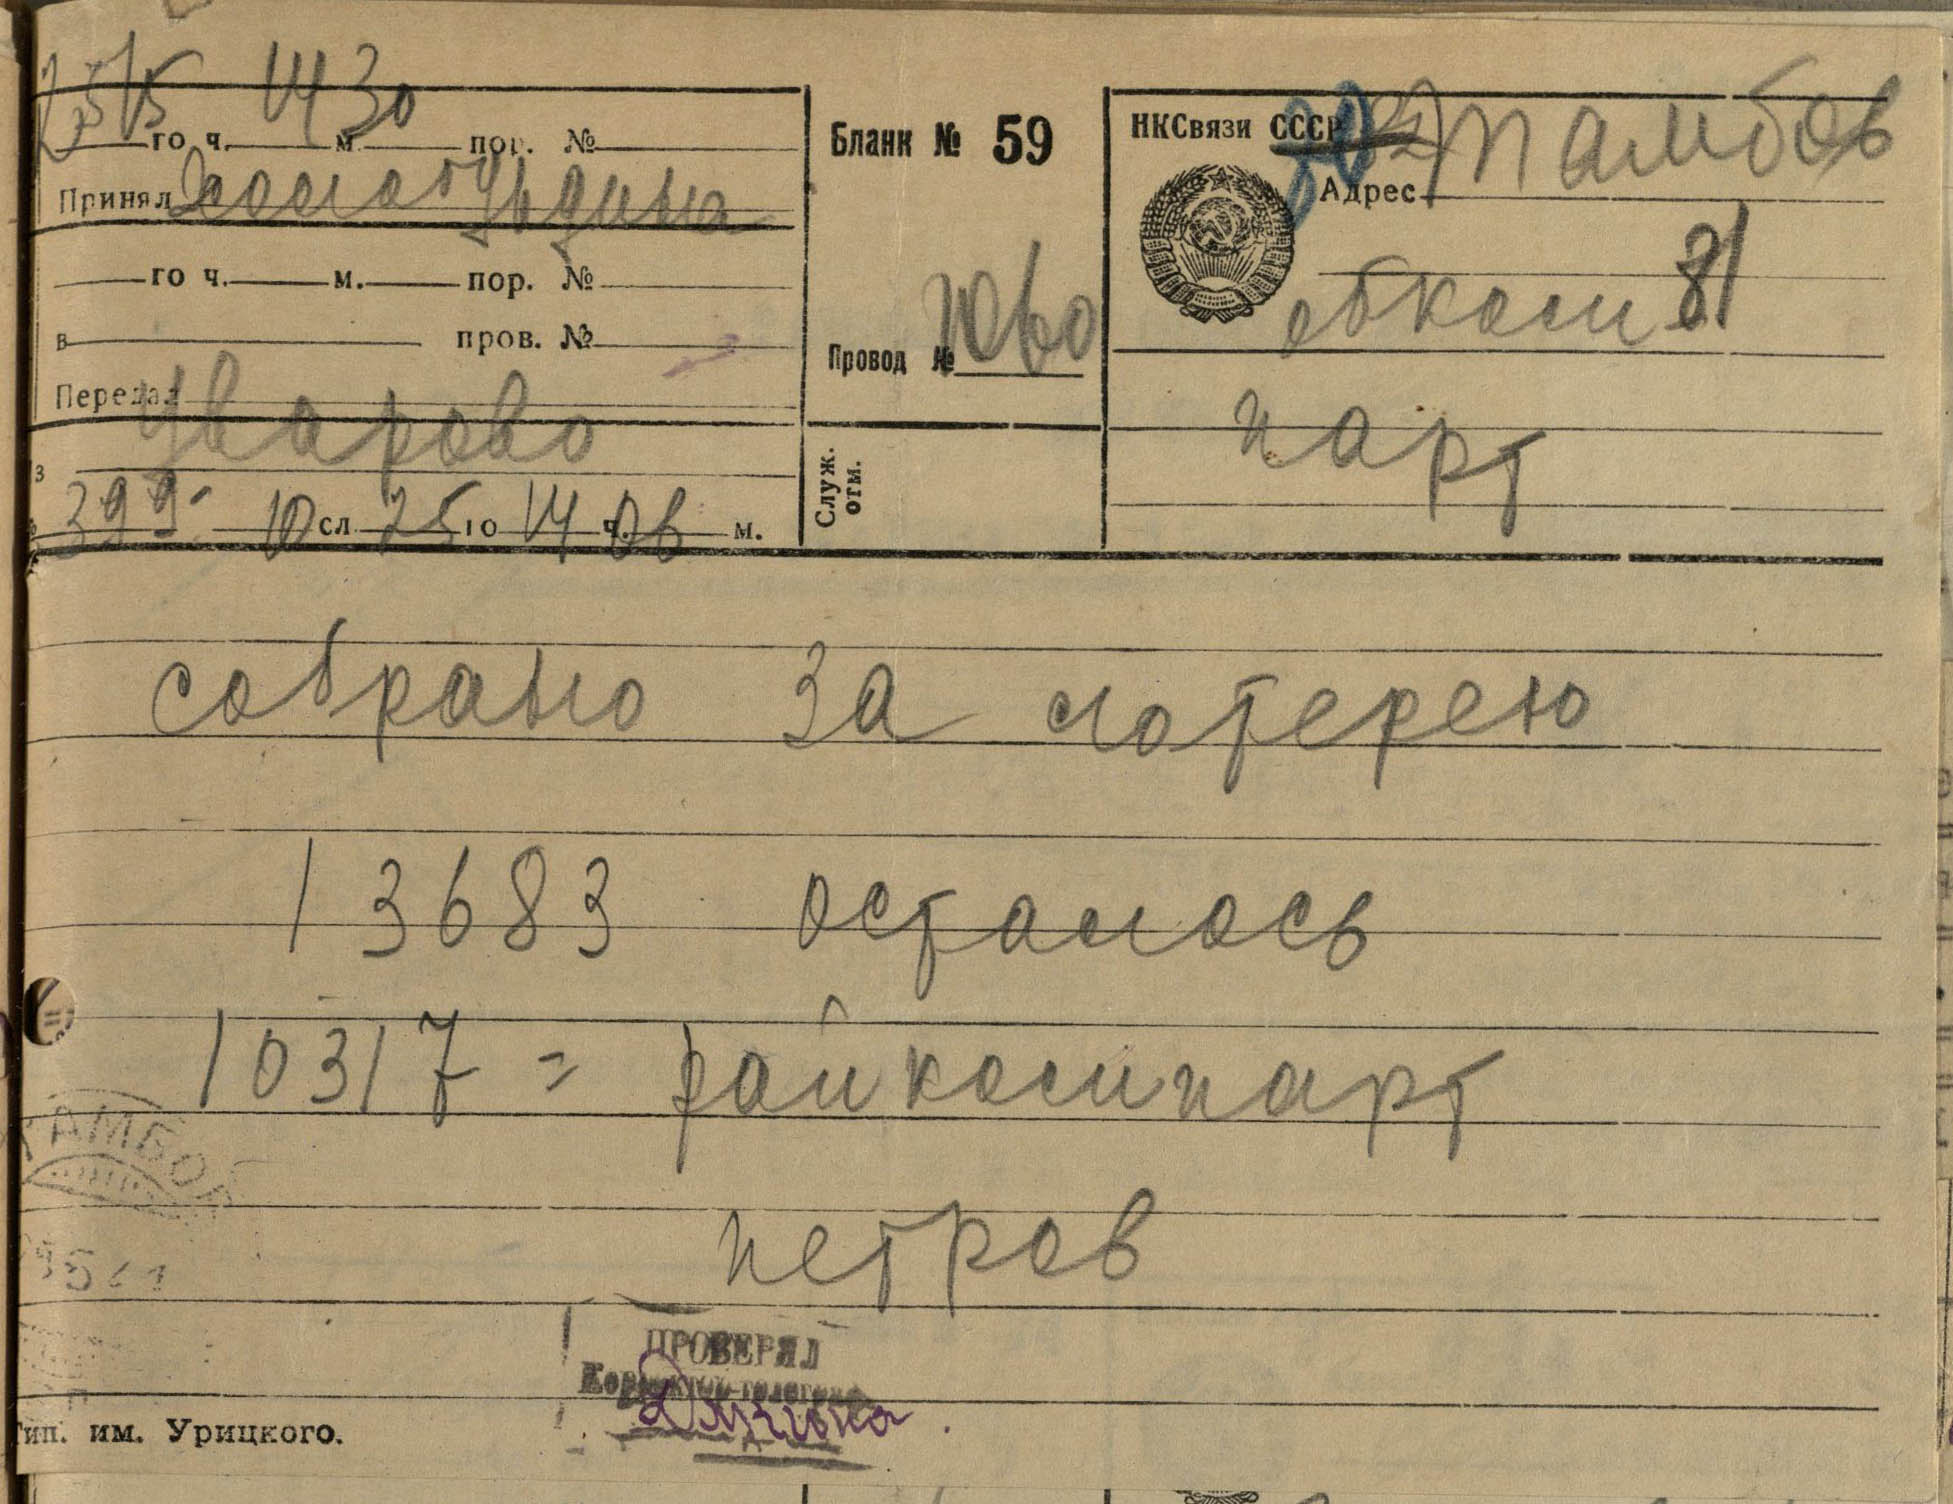 25/5 14 30
го ч. м. пор. №
Принял
го ч. м. пор. №
в пров. №
Передал
Уварово
399 10 сл 25 го 14 ч. 06 м.
Бланк № 59
Провод № 1060
Служ. отм.
НКСвязи СССР
Адрес Тамбов
обком 81
парт
собрано за лотерею
13683 осталось
10317 = райкомпарт
петров
ТАМБОВ
ПРОВЕРЯЛ
Тип. им. Урицкого.